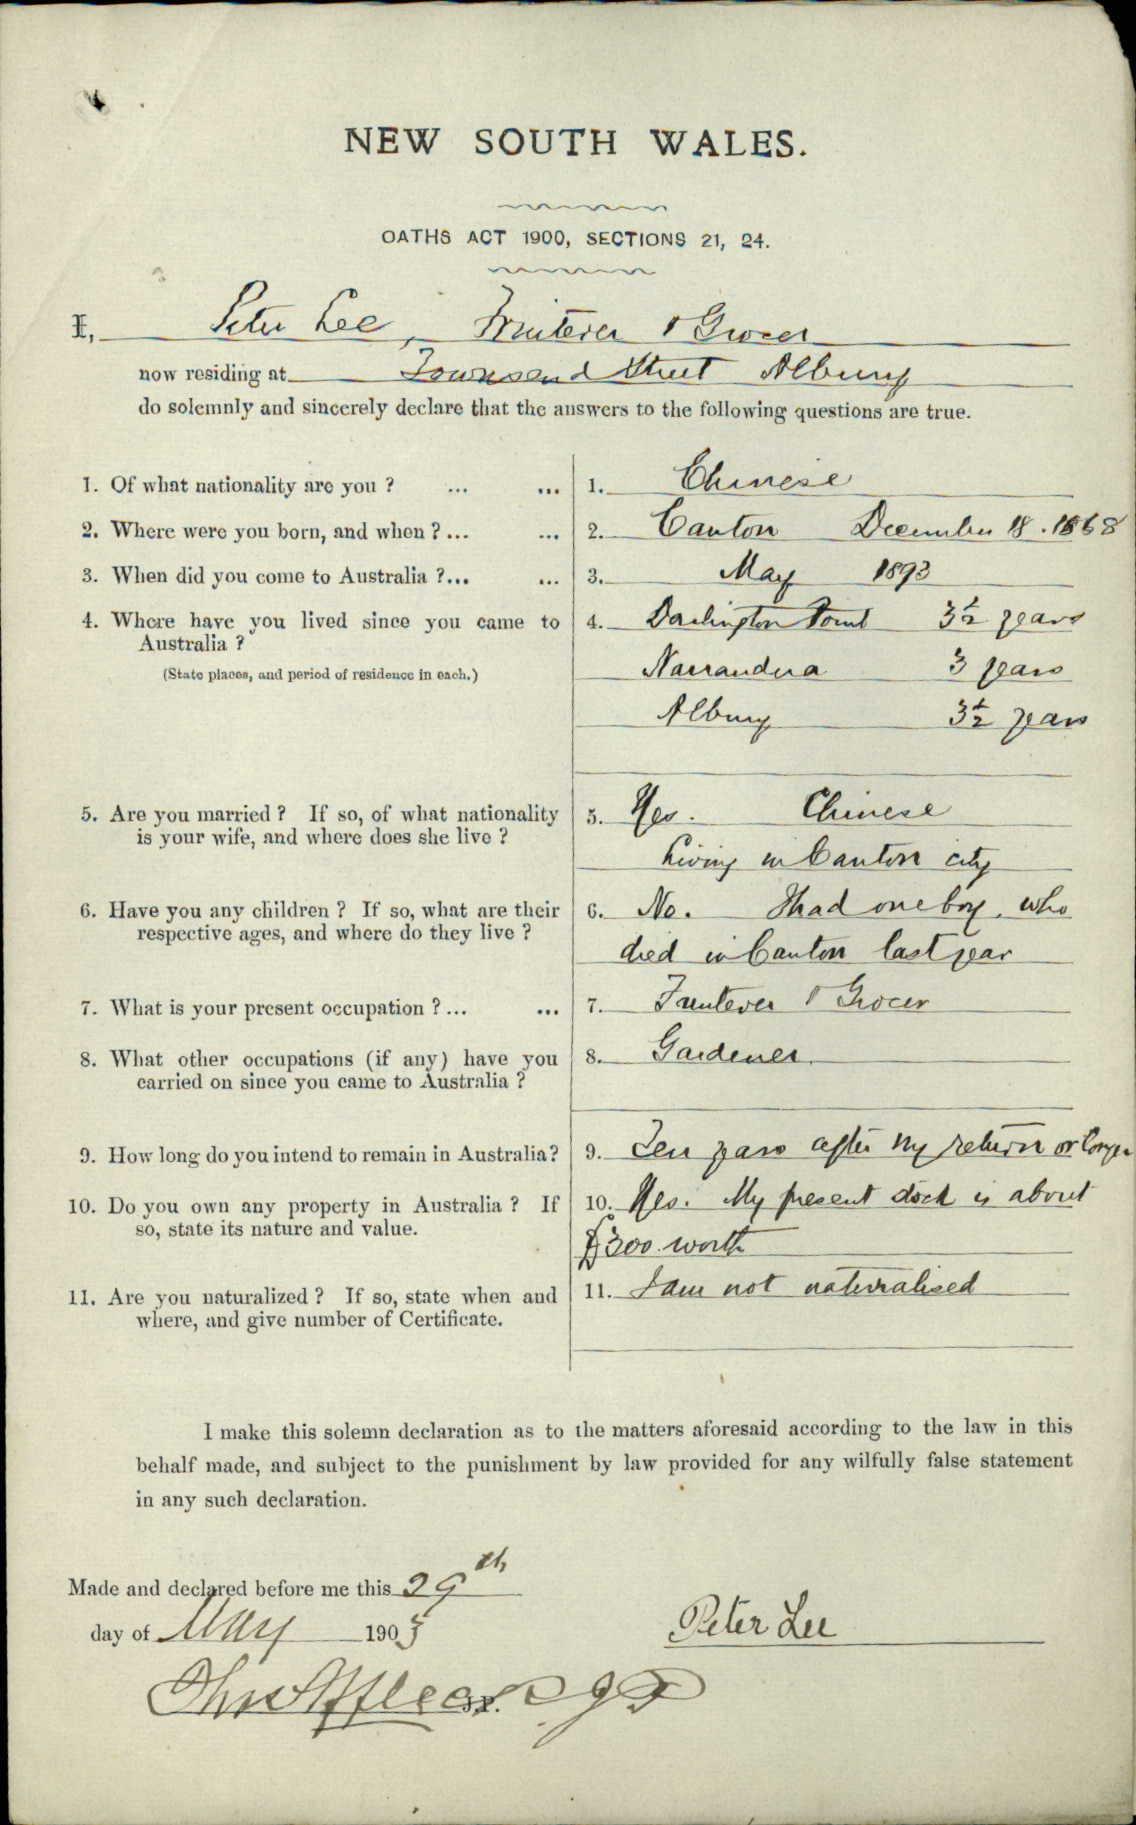 NEW SOUTH WALES.
OATHS ACT 1900, SECTIONS 21, 24.
I, Peter Lee, Fruiterer & Grocer
now residing at Townsend Street Albury
do solemnly and sincerely declare that the answers to the following questions are true.
1. Of what nationality are you ? ... ... 1. Chinese
2. Where were you born, and when ?... ... 2. Canton December 18. 1868
3. When did you come to Australia ?... ... 3. May 1893
4. Where have you lived since you came to 4. Darlington Point 3½ years
Australia ?
(State places, and period of residence in each.) Narrandera 3 years
Albury 3½ years
5. Are you married ? If so, of what nationality 5. Yes. Chinese
is your wife, and where does she live ?
Living in Canton city
6. Have you any children ? If so, what are their 6. No. I had one boy, who
respective ages, and where do they live ?
died in Canton last year
7. What is your present occupation ?... ... 7. Fruiterer & Grocer
8. What other occupations (if any) have you 8. Gardener.
carried on since you came to Australia ?
9. How long do you intend to remain in Australia? 9. Ten years after my return or longer
10. Do you own any property in Australia ? If 10. Yes. My present stock is about
so, state its nature and value.
£300 worth
11. Are you naturalized ? If so, state when and 11. I am not naturalised
where, and give number of Certificate.
I make this solemn declaration as to the matters aforesaid according to the law in this
behalf made, and subject to the punishment by law provided for any wilfully false statement
in any such declaration.
Made and declared before me this 29th
day of May 1903
Peter Lee
J.P.